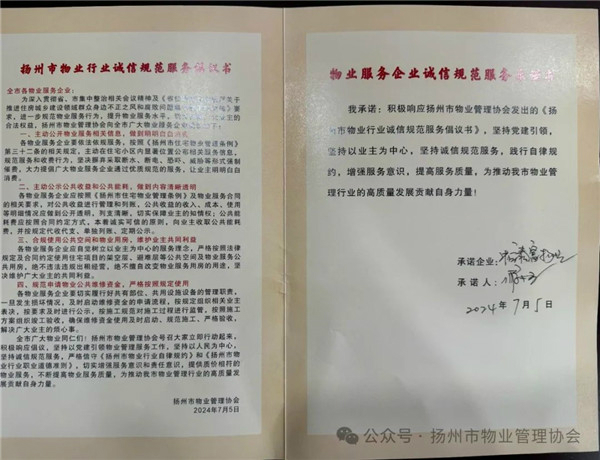 扬州市物业行业诚信规范服务倡议书
全市各物业服务企业：
为深入贯彻省、市集中整治相关会议精神及
推进住房城乡建设领域群众身边不正之风和腐败问题
求，进一步规范物业服务行为，提升物业服务水平，
合法权益，扬州市物业管理协会向全市广大物业服务企业
一、主动公开物业服务相关信息，做到明明白白
各物业服务企业要依法依规服务，按照《扬州市住宅物业管理条例》
第三十二条的相关规定，主动在住宅小区内显著位置公布相关服务信息，
规范服务和收费行为，坚决摒弃采取断水、断电、恐吓、威胁等形式强制
催费，大力提倡广大物业企业通过优质规范的服务，让业主明明白白自
消费。
二、主动公示公共收益和公共能耗，做到内容清晰透明
各物业服务企业应按照《扬州市住宅物业管理条例》及物业服务合同
的相关要求，对公共收益进行管理和列账，公共收益的收入、成本、使用
等明细情况应做到公开透明，列支清晰，切实保障业主的知情权；公共能
耗费应按照合同约定方式，本着诚实可信的原则，向业主收取公共能耗
费，并按规定代收代支，单独列账，定期公示。
三、合规使用公共空间和物业用房，维护业主共同利益
各物业服务企业自觉树立以业主为中心的服务理念，严格按照法律
规定及合同约定使用住宅项目的架空层、避难层等公共空间及物业服务公
共用房，绝不违法违规出租经营，绝不擅自改变物业服务用房的用途，坚
决维护广大业主的共同利益。
四、规范申请物业公共维修资金，严格按照规定使用
各物业服务企业要切实履行好共有部位、共用设施设备的管理职责，
一旦发生损坏情况，及时启动维修资金的申请流程，按规定组织相关业主
表决，按要求及时进行公示，按施工规范对施工过程进行监管，按照施工
方案组织竣工验收，确保维修资金使用及时启动、规范施工、严格验收，
解决广大业主的烦心事。
全市广大物业同仁们！扬州市物业管理协会号召大家立即行动起来，
积极响应倡议，坚持以党建引领物业管理服务工作，坚持以人民为中心，
坚持诚信规范服务，严格信守《扬州市物业行业自律规约》和《扬州市物
业行业职业道德准则》，切实增强服务意识和责任意识，提供质价相符的
物业服务，不断提高物业服务质量，为推动我市物业管理行业的高质量发
展贡献自身力量！
扬州市物业管理协会
2024年7月5日
物业服务企业诚信规范服务
我承诺：积极响应扬州市物业管理协会发出的《扬
州市物业行业诚信规范服务倡议书》，坚持党建引领，
坚持以业主为中心，坚持诚信规范服务，践行自律规
约，增强服务意识，提高服务质量，为推动我市物业
管理行业的高质量发展贡献自身力量！
承诺企业：
承诺人：
2024年7月5日
公众号·扬州市物业管理协会